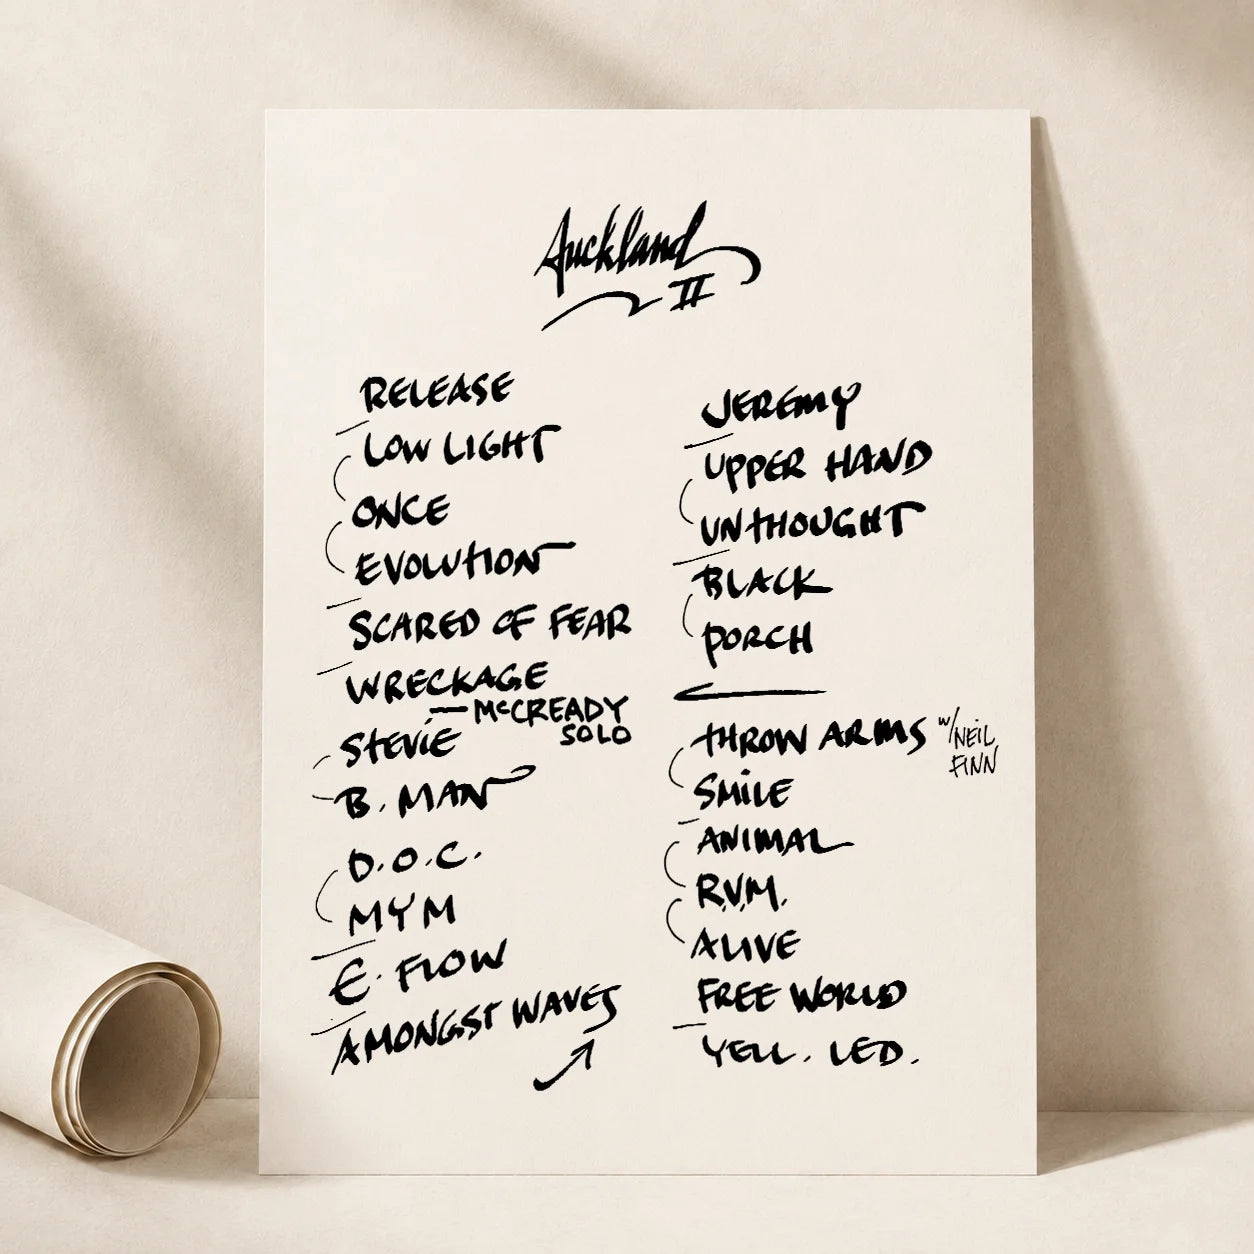 Auckland
II
RELEASE
LOW LIGHT
ONCE
EVOLUTION
SCARED OF FEAR
WRECKAGE
— McCREADY
SOLO
STEVIE
B. MAN
D.O.C.
MYM
E. FLOW
AMONGST WAVES
JEREMY
UPPER HAND
UNTHOUGHT
BLACK
PORCH
THROW ARMS w/NEIL
FINN
SMILE
ANIMAL
R.V.M.
ALIVE
FREE WORLD
YELL. LED.